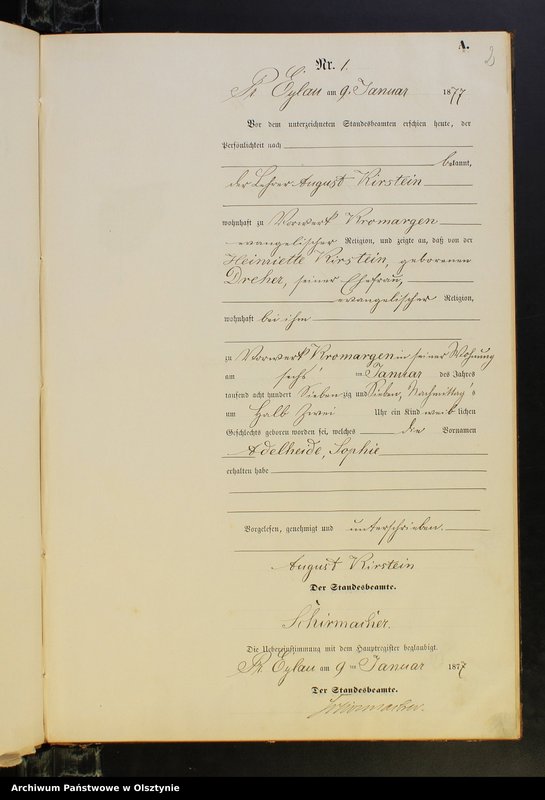 A.
2
Nr. 1.
Pr. Eylau am 9. Januar 1877
Vor dem unterzeichneten Standesbeamten erschien heute, der
Persönlichkeit nach
bekannt,
der Lehrer August Kirstein
wohnhaft zu Vorwerk Kromargen
evangelischer Religion, und zeigte an, daß von der
Henriette Kirstein, geborenen
Dreher, seiner Ehefrau,
evangelischer Religion,
wohnhaft bei ihm
zu Vorwerk Kromargen in seiner Wohnung
am sechs ten Januar des Jahres
tausend acht hundert Sieben zig und Sieben, Nachmittag's
um Halb Zwei Uhr ein Kind weib lichen
Geschlechts geboren worden sei, welches die Vornamen
Adelheide, Sophie
erhalten habe
Vorgelesen, genehmigt und unterschrieben.
August Kirstein
Der Standesbeamte.
Schirmacher.
Die Uebereinstimmung mit dem Hauptregister beglaubigt.
Pr. Eylau am 9 ten Januar 1877
Der Standesbeamte.
Schirmacher.
Archiwum Państwowe w Olsztynie